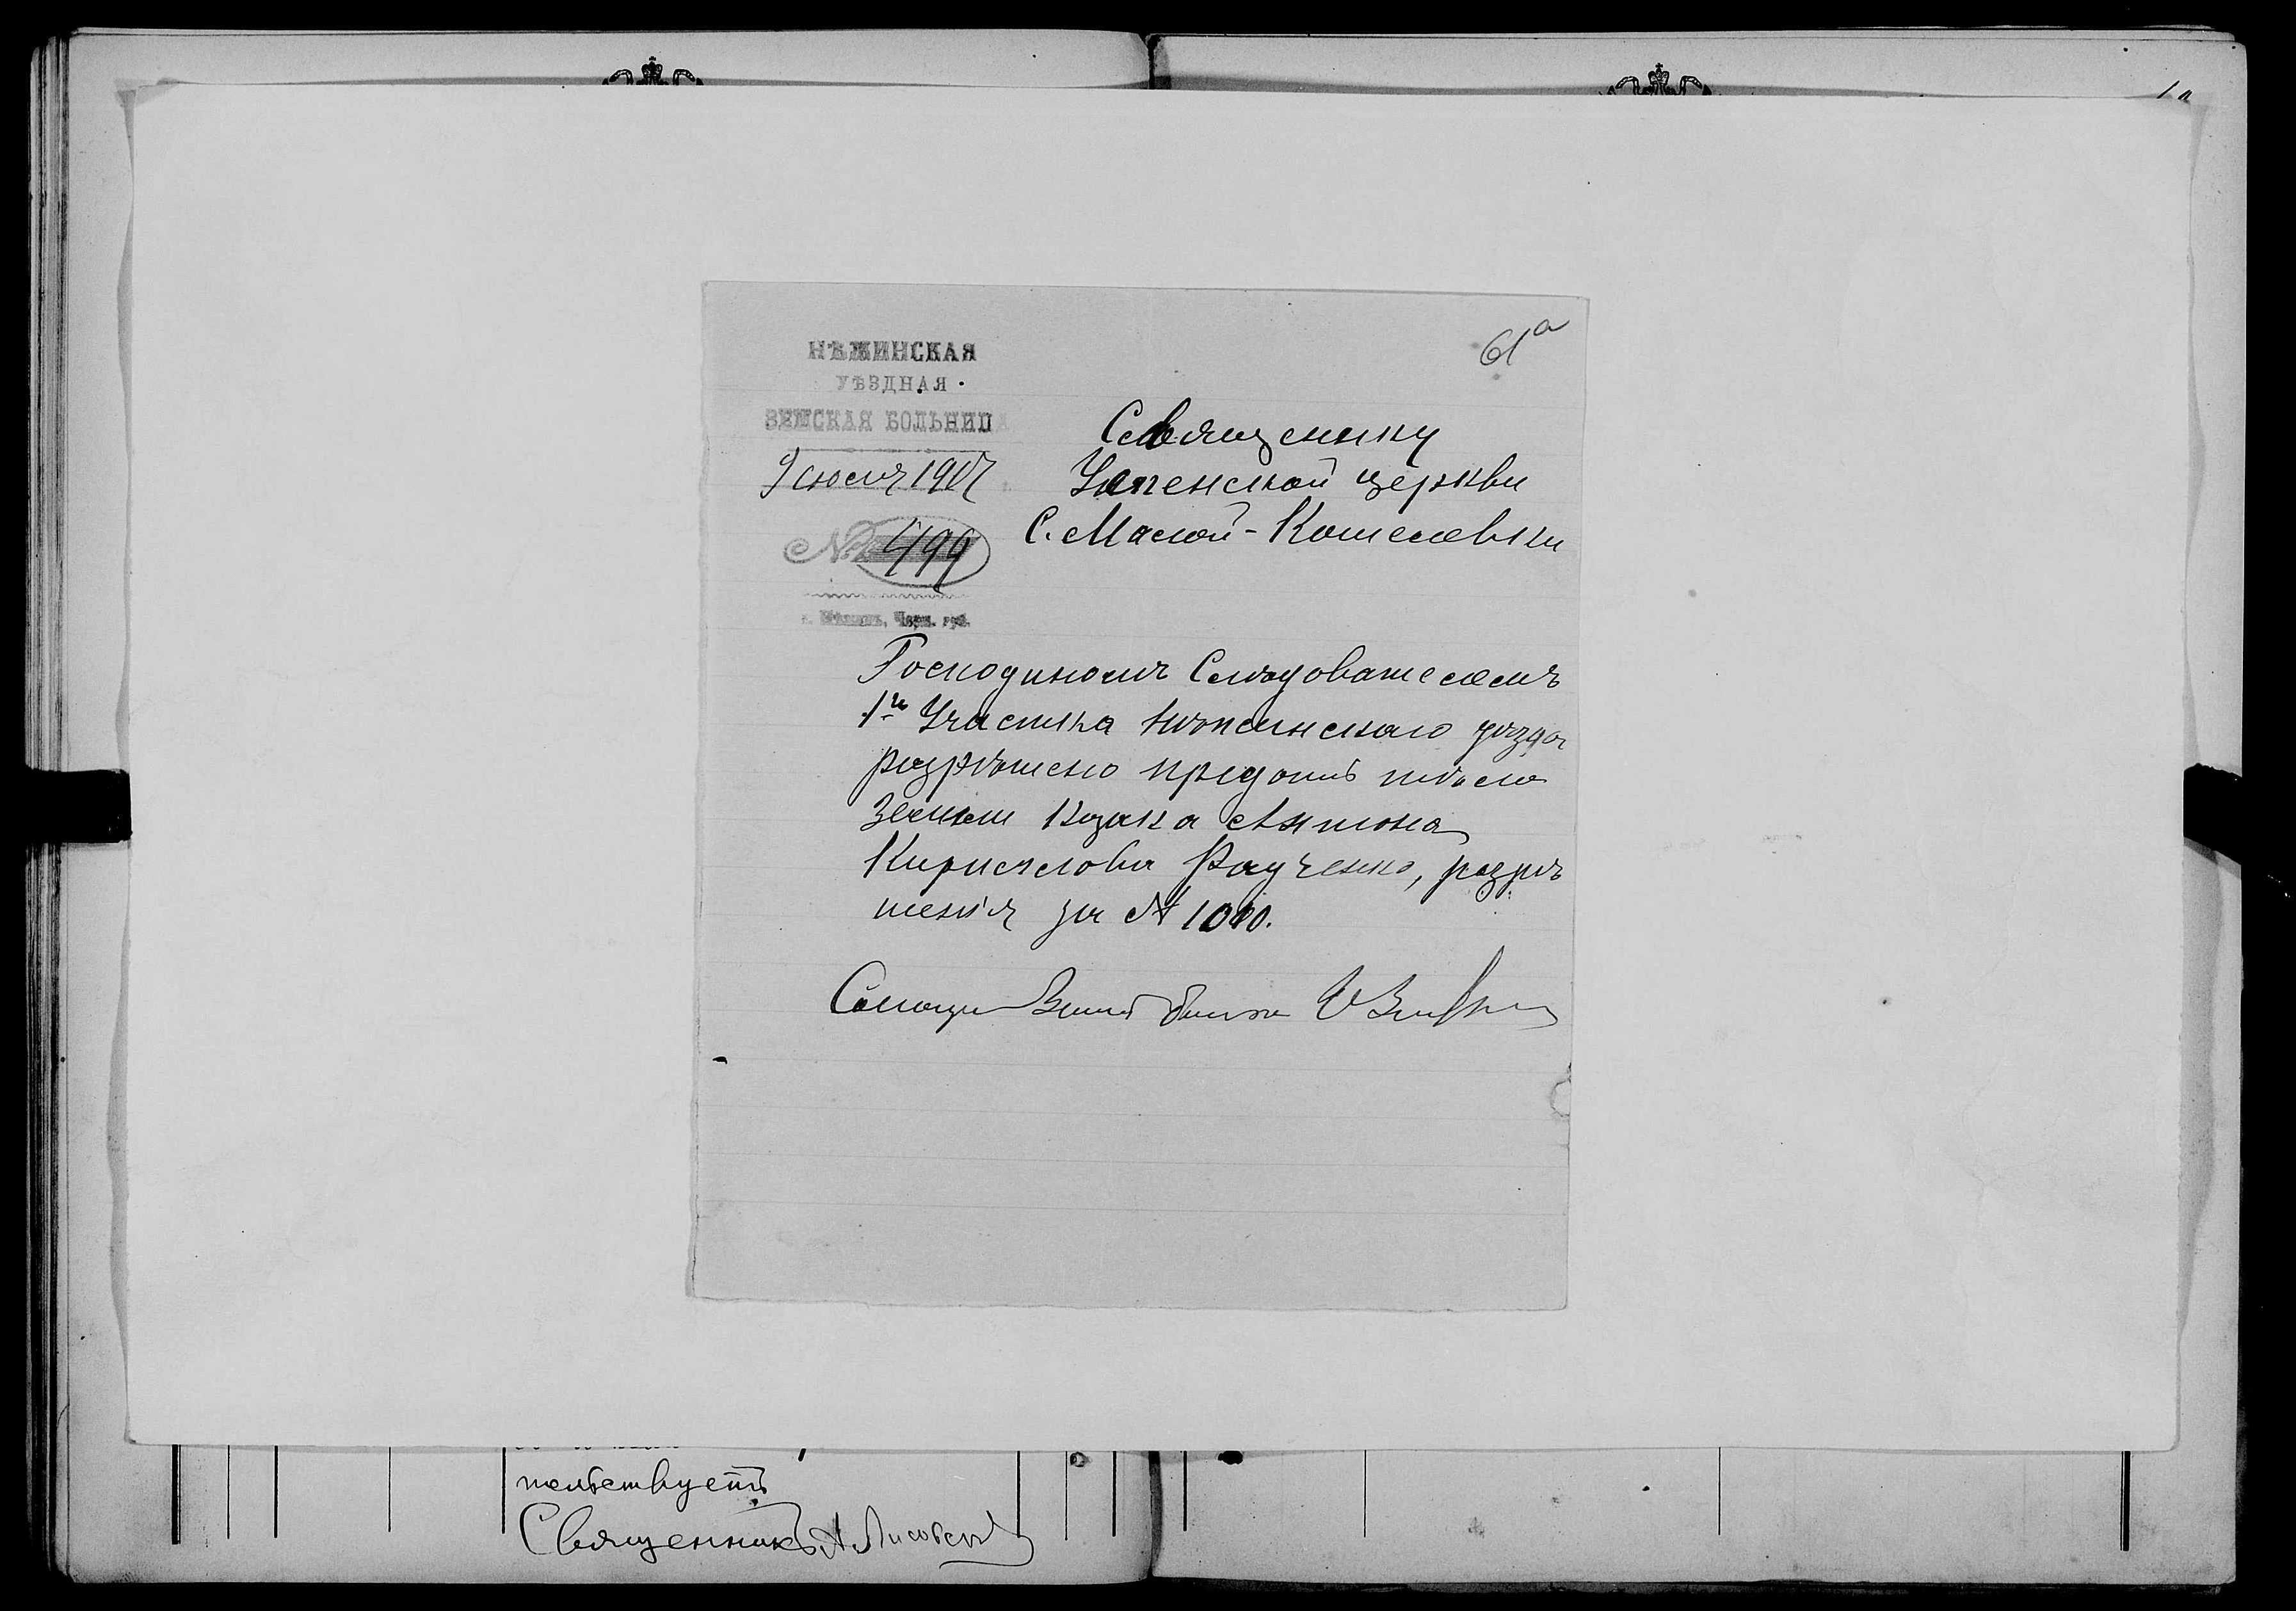 61а
НѢЖИНСКАЯ
УѢЗДНАЯ
ЗЕМСКАЯ БОЛЬНИЦА
9 июля 1907
№ 499
г. Нѣжинъ, Черн. губ.
Священнику
Успенской церкви
С. Малой-Кошелевки
Господиномъ Слѣдователемъ
1го Участка Нѣжинскаго уѣзда
разрѣшено предать тѣло
земли Козака Антона
Кириллова Радченко, разрѣ
шенія за № 1010.
тельствуетъ
Священникъ А. Лисовскій